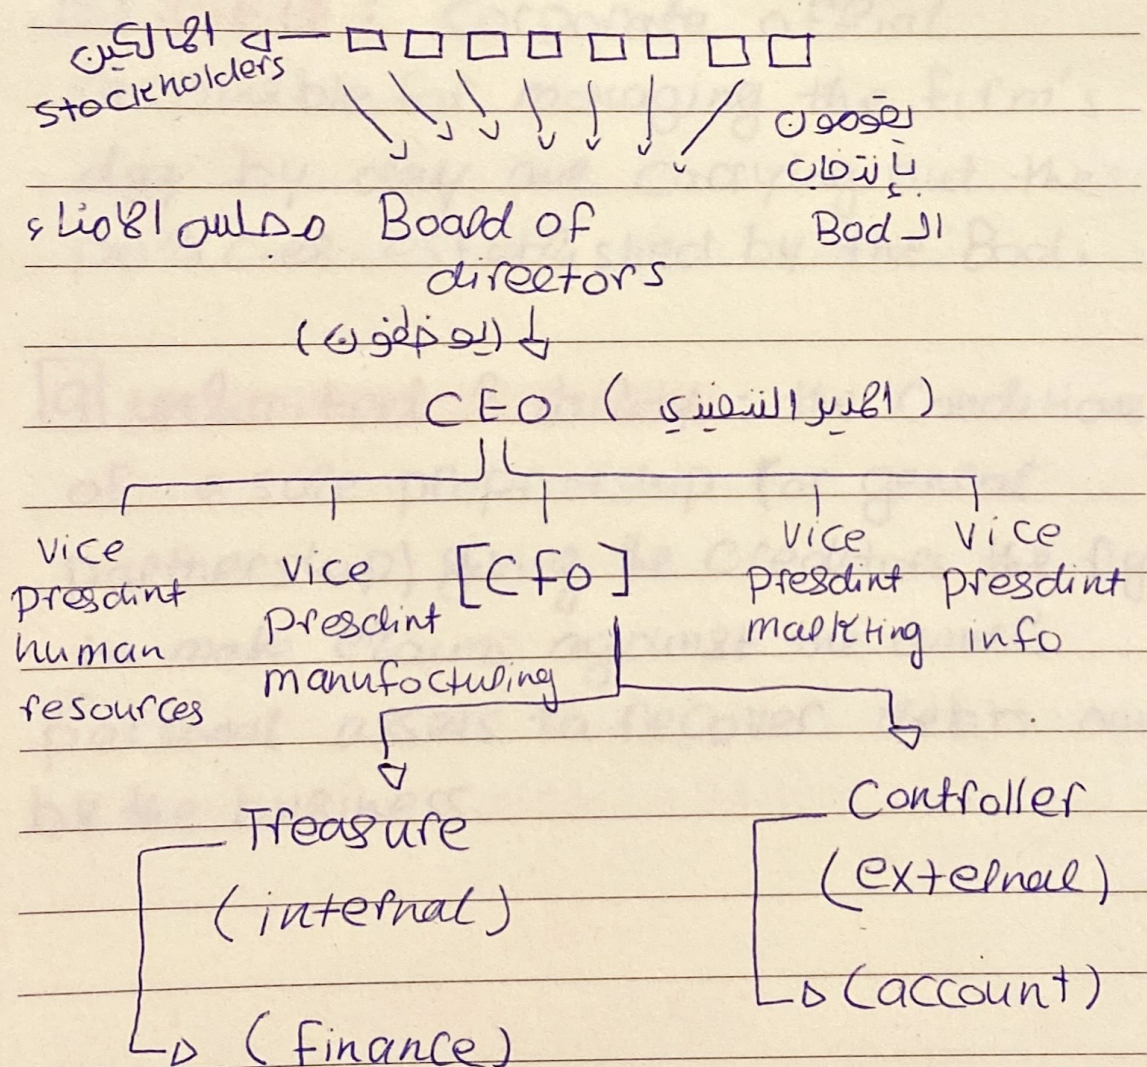 المالكين
stockholders
يقومون
بإنتخاب
الـ Bod
مجلس الامناء Board of
directors
(يوظفون)
CEO (المدير التنفيذي)
vice
presdint
human
resources
vice
presdint
manufocturing
[CFO]
vice
presdint
markting
vice
presdint
info
Treasure
(internal)
(finance)
Controller
(external)
(account)